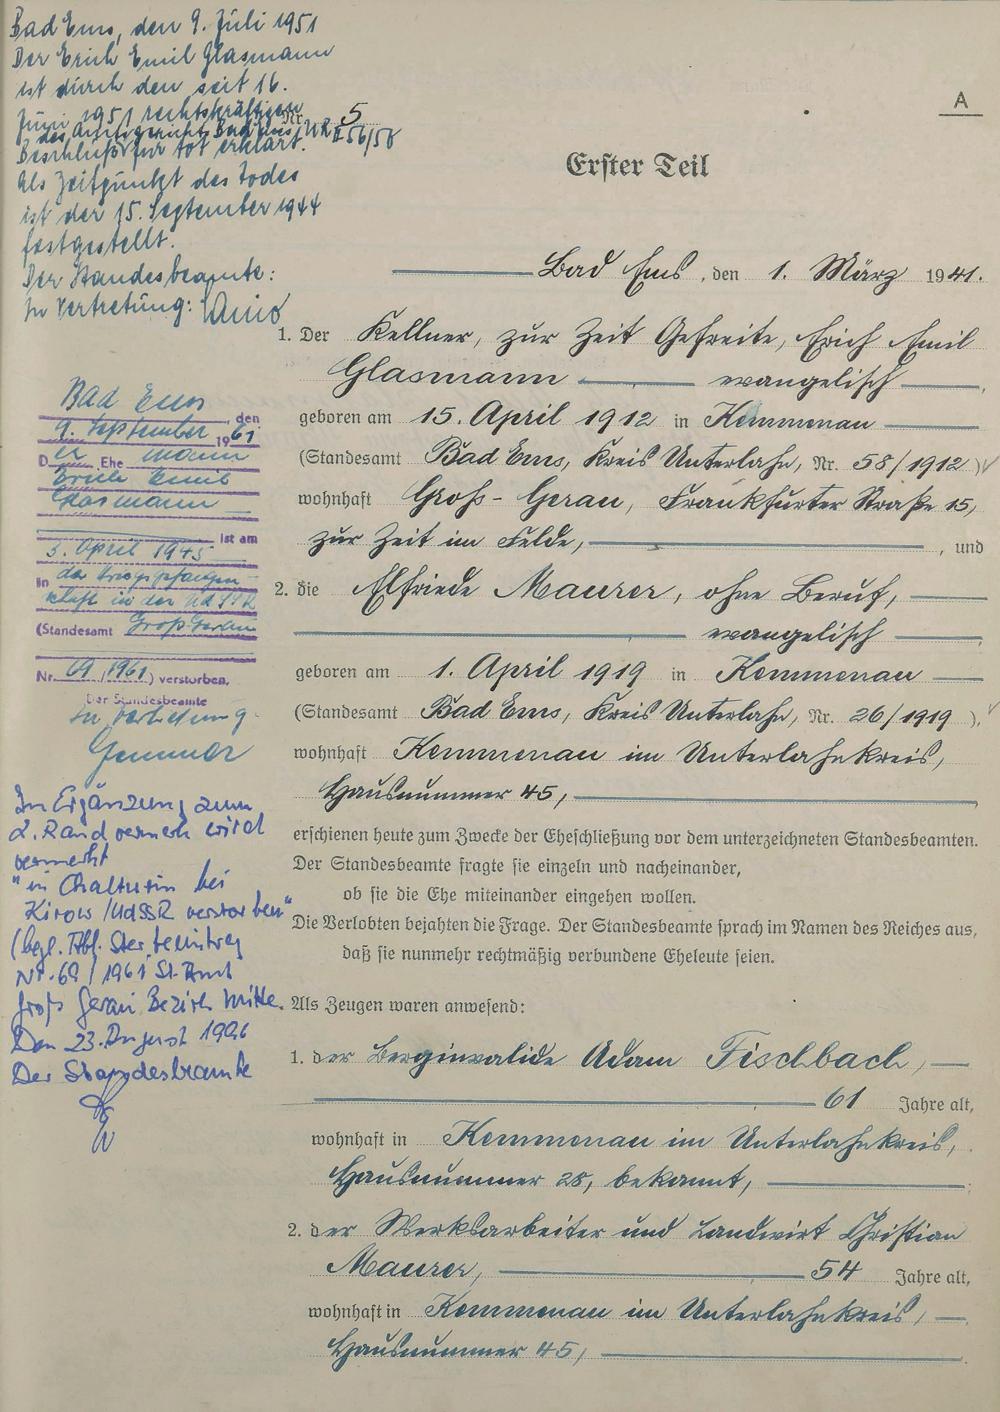 Bad Ems, den 9. Juli 1951
Der Erich Emil Glasmann
ist durch den seit 16.
Juni 1951 rechtskräftigen
des Amtsgerichts Bad Ems, UR II 56/50
Beschluß für tot erklärt.
Als Zeitpunkt des Todes
ist der 15. September 1944
festgestellt.
Der Standesbeamte:
In Vertretung:
Bad Ems
, den
9. September 1961
D er Ehe mann
Erich Emil
Glasmann
ist am
3. April 1945
in der Kriegsgefangen-
schaft in der UdSSR
(Standesamt Groß Gerau
Nr. 69 / 1961) verstorben.
Der Standesbeamte
In Vertretung
In Ergänzung zum
2. Randvermerk wird
vermerkt
"in Chalturin bei
Kirow/UdSSR verstorben"
(begl. Abl. Sterbeeintrag
Nr. 69/1961 St. Amt
Groß Gerau Bezirk Mitte.
Den 23. August 1996
Der Standesbeamte
A
Nr. 5
Erster Teil
Bad Ems, den 1. März 1941.
1. Der Kellner, zur Zeit Gefreite, Erich Emil
Glasmann evangelisch,
geboren am 15. April 1912 in Kemmenau
(Standesamt Bad Ems, Kreis Unterlahn, Nr. 58/1912)
wohnhaft Groß-Gerau, Frankfurter Straße 15,
zur Zeit im Felde, , und
2. die Elfriede Maurer, ohne Beruf,
evangelisch,
geboren am 1. April 1919 in Kemmenau
(Standesamt Bad Ems, Kreis Unterlahn, Nr. 26/1919),
wohnhaft Kemmenau im Unterlahnkreis,
Hausnummer 45,
erschienen heute zum Zwecke der Eheschließung vor dem unterzeichneten Standesbeamten.
Der Standesbeamte fragte sie einzeln und nacheinander,
ob sie die Ehe miteinander eingehen wollen.
Die Verlobten bejahten die Frage. Der Standesbeamte sprach im Namen des Reiches aus,
daß sie nunmehr rechtmäßig verbundene Eheleute seien.
Als Zeugen waren anwesend:
1. der Berginvalide Adam Fischbach,
61 Jahre alt,
wohnhaft in Kemmenau im Unterlahnkreis,
Hausnummer 28, bekannt,
2. der Werksarbeiter und Landwirt Christian
Maurer, 54 Jahre alt,
wohnhaft in Kemmenau im Unterlahnkreis,
Hausnummer 45,